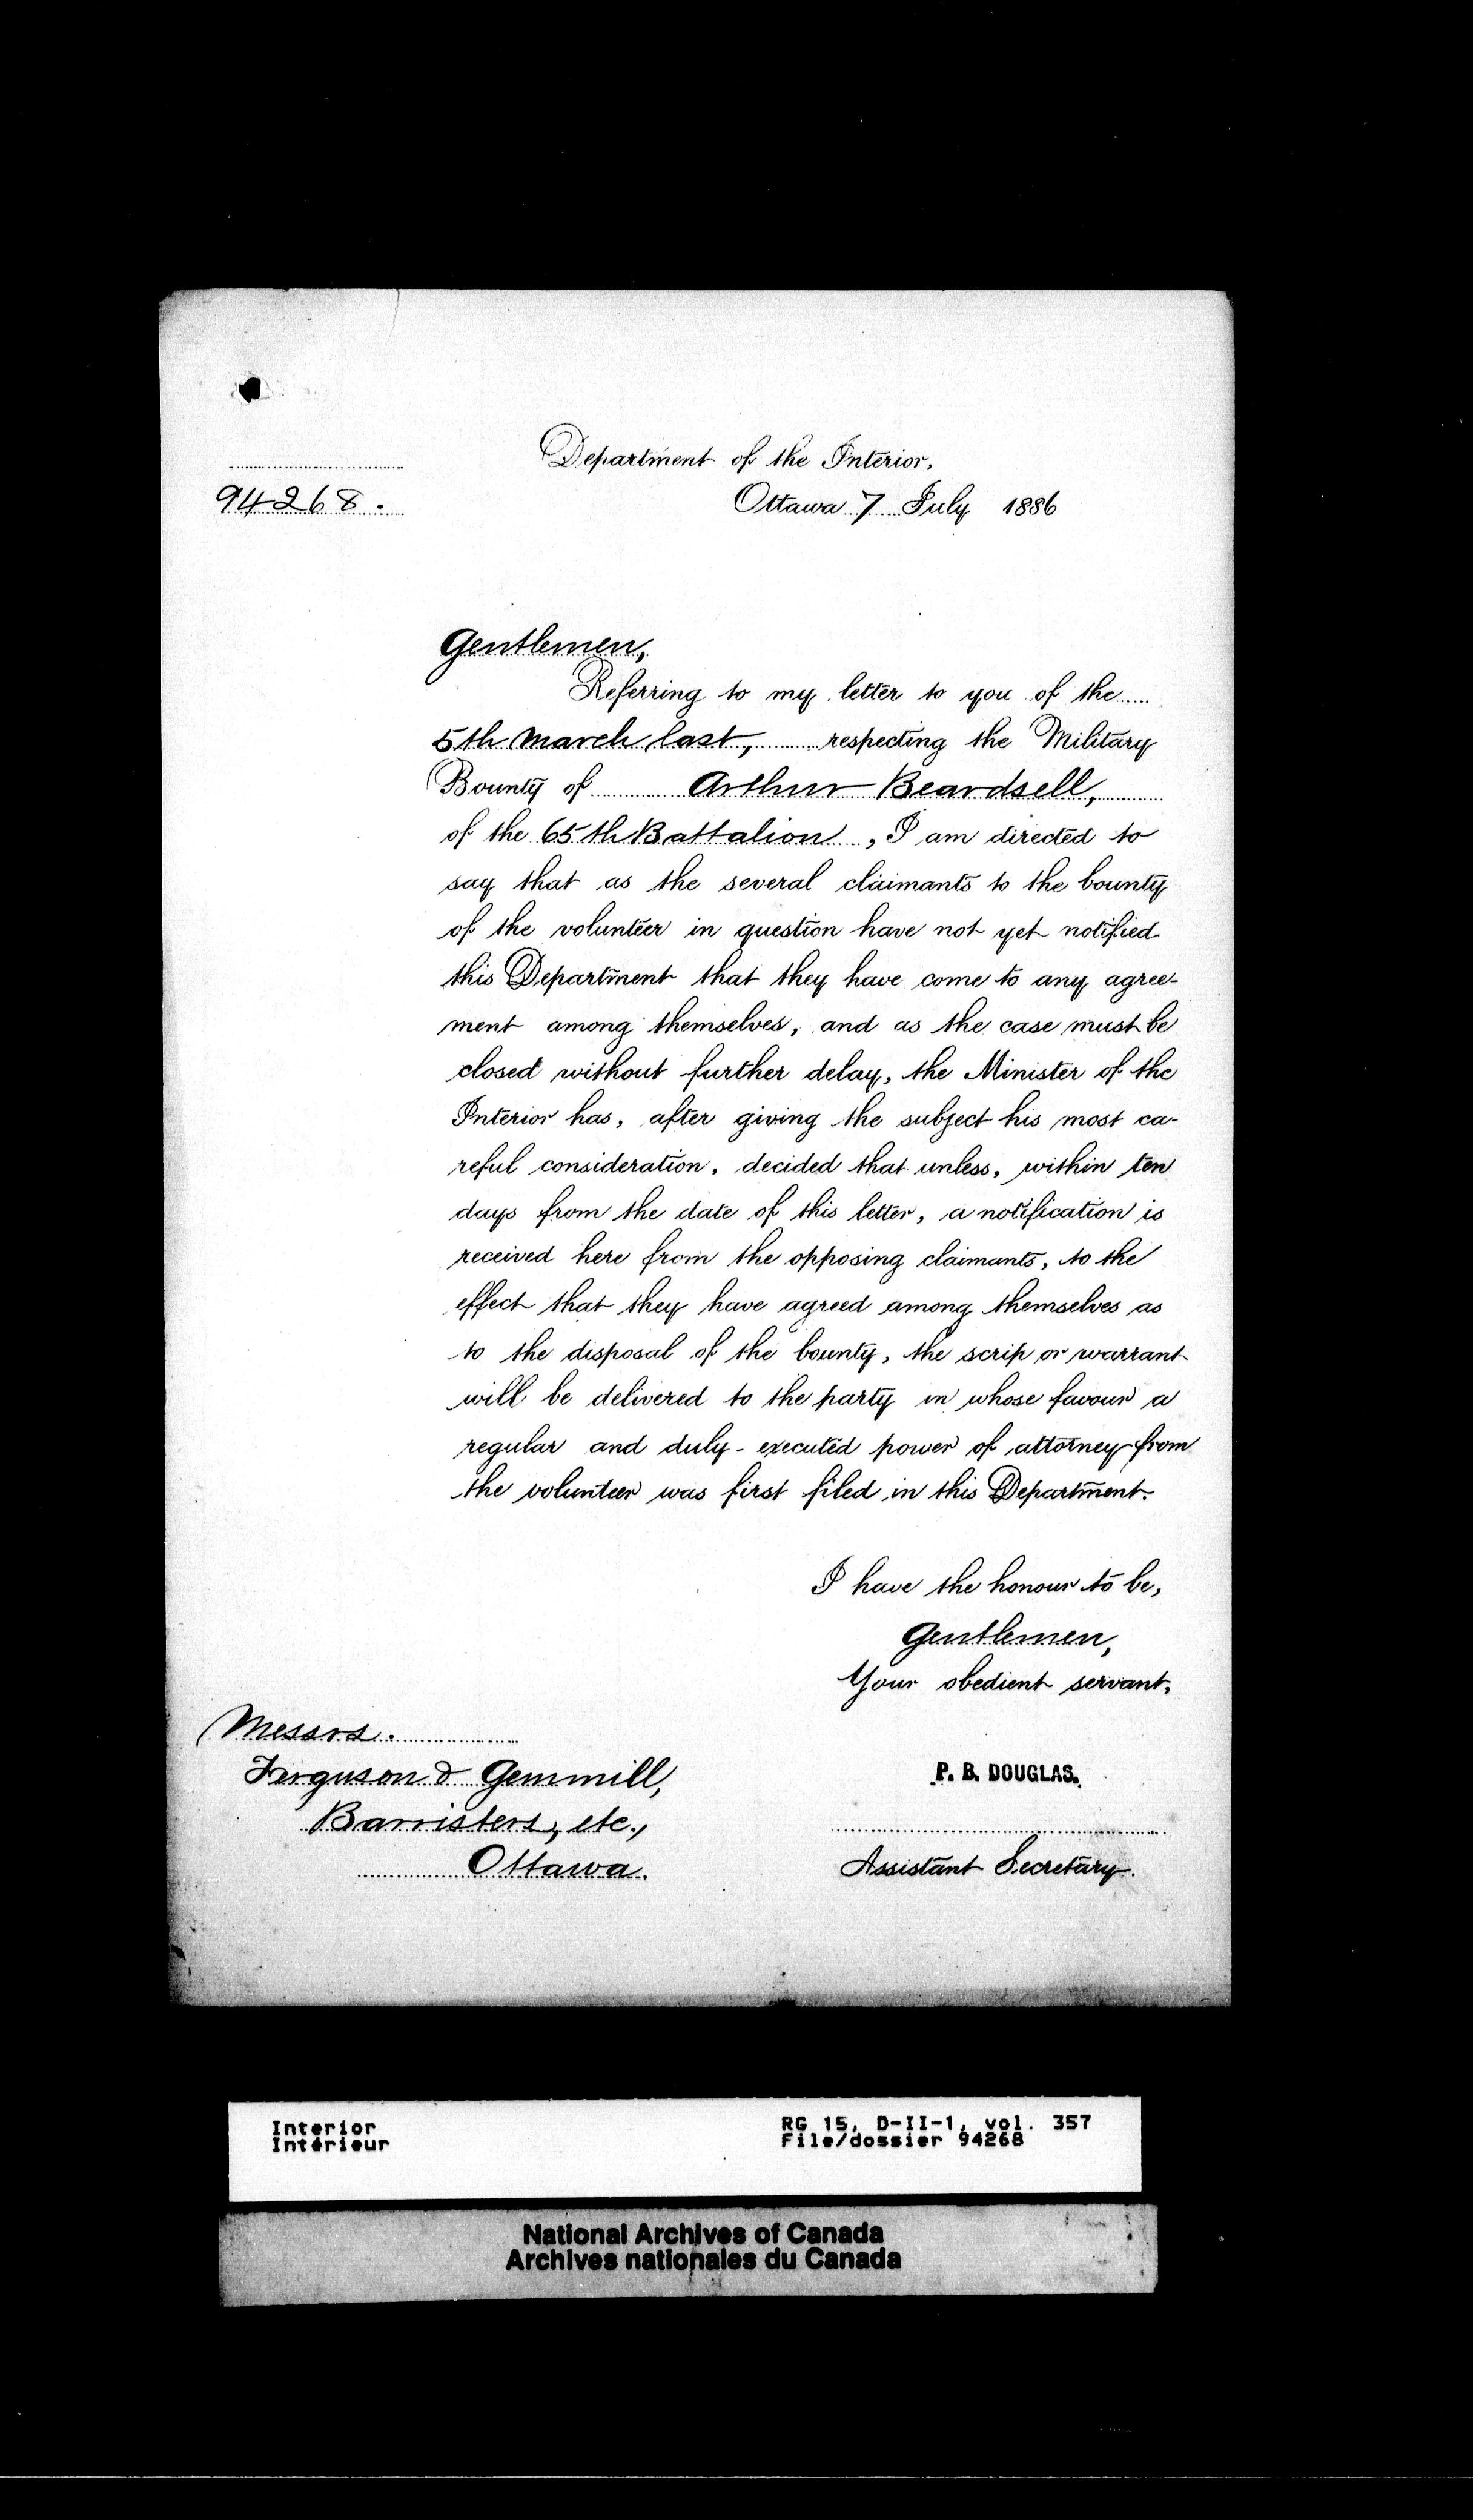 Department of the Interior,
94268.
Ottawa 7 July 1886
Gentlemen,
Referring to my letter to you of the
5th March last, respecting the Military
Bounty of Arthur Beardsell,
of the 65th Battalion, I am directed to
say that as the several claimants to the bounty
of the volunteer in question have not yet notified
this Department that they have come to any agree-
ment among themselves, and as the case must be
closed without further delay, the Minister of the
Interior has, after giving the subject his most ca-
reful consideration, decided that unless, within ten
days from the date of this letter, a notification is
received here from the opposing claimants, to the
effect that they have agreed among themselves as
to the disposal of the bounty, the scrip or warrant
will be delivered to the party in whose favour a
regular and duly-executed power of attorney from
the volunteer was first filed in this Department.
I have the honour to be,
Gentlemen,
Your obedient servant,
Messrs.
Ferguson & Gemmill,
Barristers, etc.,
Ottawa.
P. B. DOUGLAS.
Assistant Secretary.
Interior
Intérieur
RG 15, D-II-1, vol. 357
File/dossier 94268
National Archives of Canada
Archives nationales du Canada